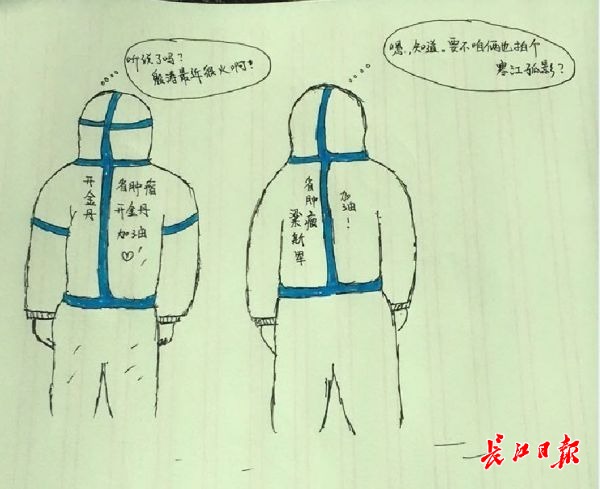 听说了吗?
殷涛最近很火啊!
嗯,知道。要不咱俩也拍个
寒江孤影?
开金丹
省肿瘤
开金丹
加油
省肿瘤
加油!
长江日报